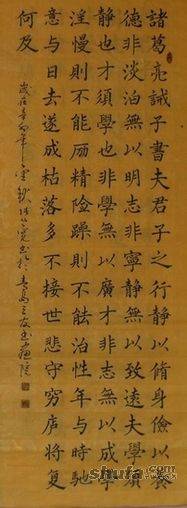 諸葛亮誡子書夫君子之行靜以脩身儉以養
德非淡泊無以明志非寧靜無以致遠夫學須
靜也才須學也非學無以廣才非志無以成學
淫慢則不能励精险躁則不能治性年与時馳
意与日去遂成枯落多不接世悲守穷庐将复
何及
shufa.com